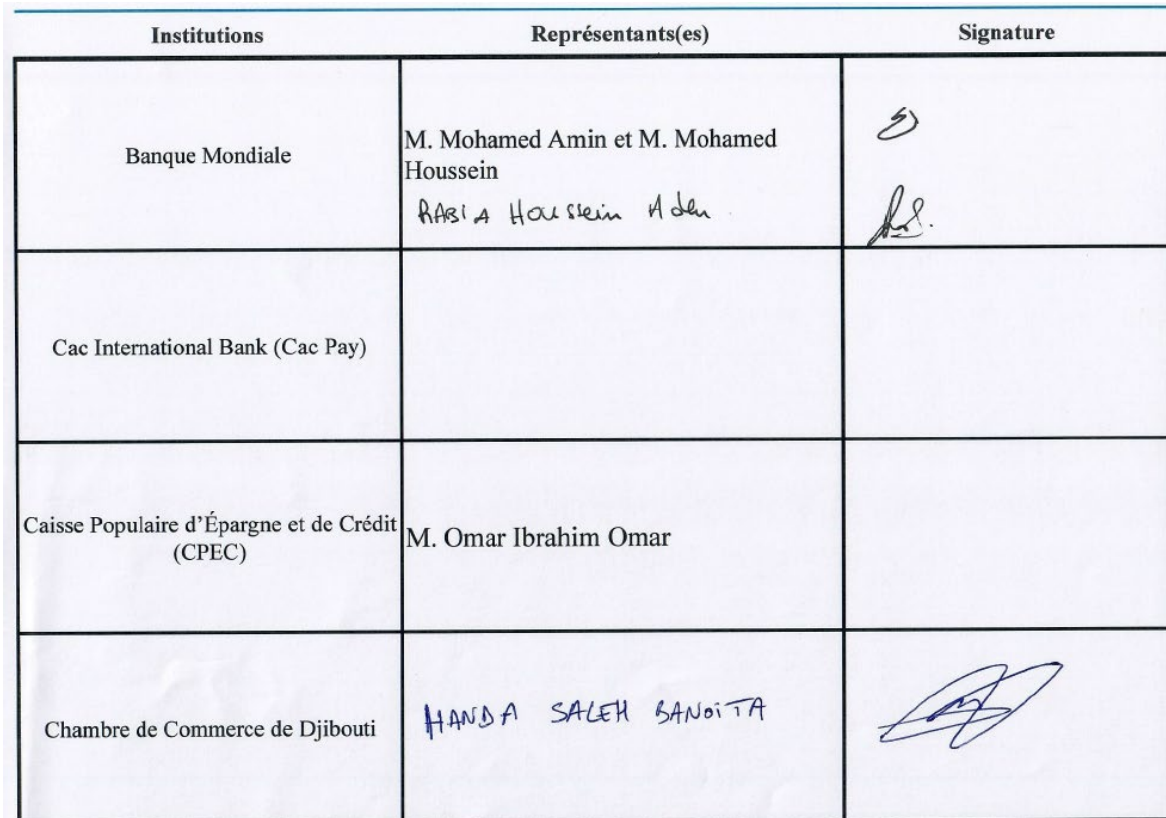 Institutions Représentants(es) Signature
Banque Mondiale
M. Mohamed Amin et M. Mohamed
Houssein
RABIA Houssein Aden
Cac International Bank (Cac Pay)
Caisse Populaire d'Épargne et de Crédit
(CPEC)
M. Omar Ibrahim Omar
Chambre de Commerce de Djibouti
HANDA SALEH BANOITA